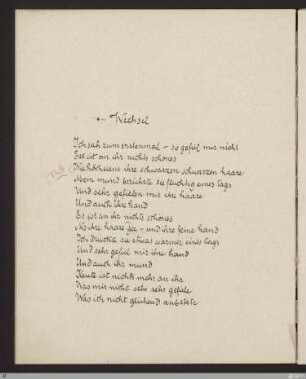 Wechsel
Ich sah zum erstenmal – sie gefiel mir nicht
Es ist an ihr nichts schönes
Wie höchstens ihre schwarzen schwarzen haare
Mein mund berührte sie flüchtig eines tags
Und sehr gefielen mir ihr haare
Und auch ihre hand
Es ist an ihr nichts schönes
Als ihre haare ja – und ihre feine hand
Ich drückte sie etwas wärmer eines tags
Und sehr gefiel mir ihre hand
Und auch ihr mund
Heute ist nichts mehr an ihr
Was mir nicht sehr sehr gefiele
Was ich nicht glühend anbetete